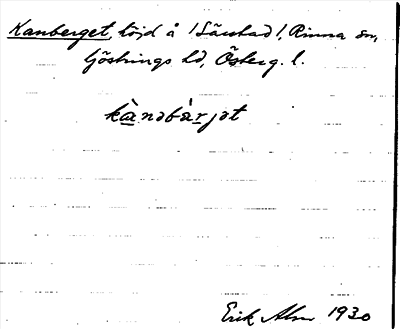 Kanberget, höjd å /Särstad/, Rinna sn,
Göstrings hd, Österg. l.
kànəbàrjət
Erik Alm 1930